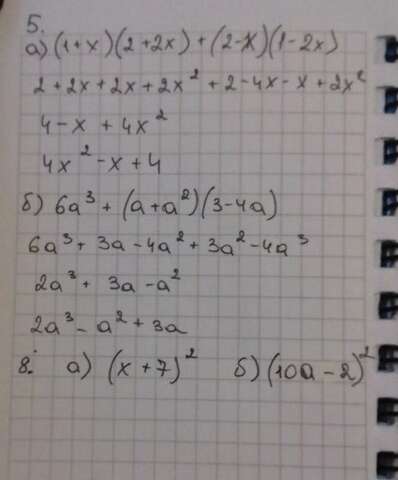 5.
а) (1+x)(2+2x)+(2-x)(1-2x)
2+2x+2x+2x²+2-4x-x+2x²
4-x+4x²
4x²-x+4
б) 6a³+(a+a²)(3-4a)
6a³+3a-4a²+3a²-4a³
2a³+3a-a²
2a³-a²+3a
8. а) (x+7)² б) (10a-2)²